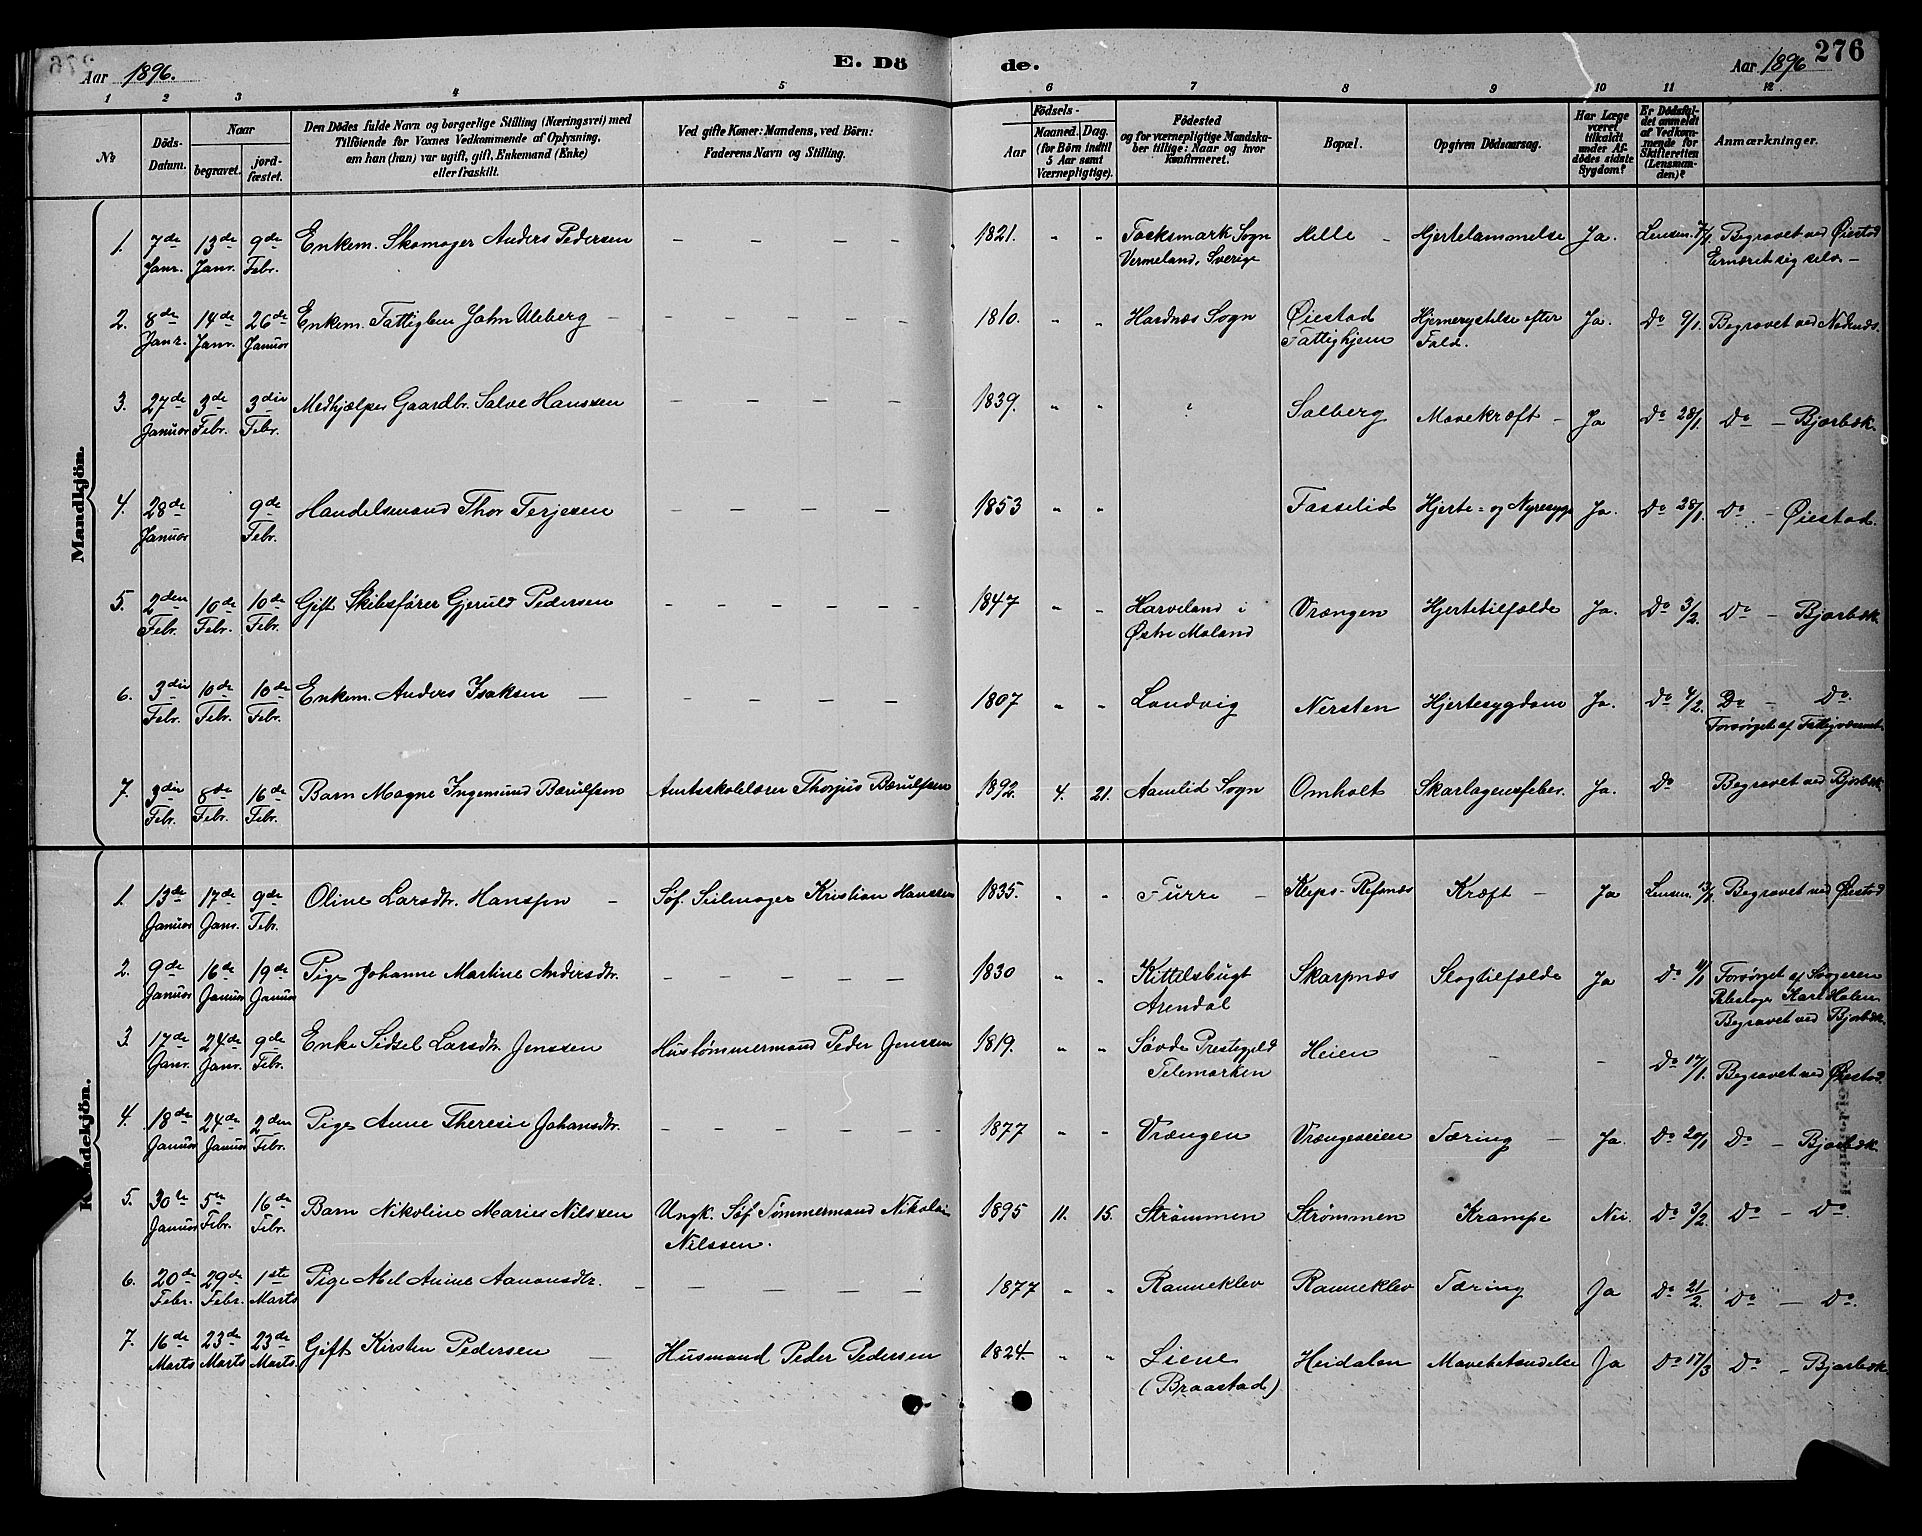 Aar 1896.
E. Dö
de.
Aar 1896
276
1 2 3 4 5 6 7 8 9 10 11 12
No
Döds-Datum.
Naar
begravet.
jordfæstet.
Den Dödes fulde Navn og borgerlige Stilling (Næringsvei) med
Tilföiende for Voxnes Vedkommende af Oplysning,
om han (han) var ugift, gift, Enkemand (Enke)
eller fraskilt.
Ved gifte Koner: Mandens, ved Börn:
Faderens Navn og Stilling.
Födsels-
Aar
Maaned. Dag.
(for Börn indtil
5 Aar samt
Værnepligtige).
Födested
og for værnepligtige Mandskaber tillige: Naar og hvor
Konfirmeret.
Bopæl.
Opgiven Dödsaarsag.
Har Læge
været
tilkaldt
under Afdödes sidste
Sygdom?
Er Dödsfaldet anmeldt
af Vedkommende for
Skifteretten
(Lensmanden)?
Anmærkninger.
Mandkjön.
1. 7de Janr. 13de Janr. 9de Febr. Enkem. Skomager Anders Pedersen — 1821. " " Focksmark Sogn Vermeland, Sverige Hille — Hjertelammelse Ja. Lensm. 7/1. Begravet ved Øiestad Ernæret sig selv —
2. 8de Janr. 14de Janr. 26de Januar Enkem. Fattiglem John Uleberg — 1810. " " Hordnæs Sogn Øiestad Fattighjem Hjernerystelse efter Fald. Ja. Do 9/1. Begravet ved Nednæs.
3. 27de Januar 3de Febr. 3die Febr. Medhjælper Gaardbr. Salve Hanssen — 1839. " " ? Solberg Mavekræft — Ja Do 28/1. Do — Bjorbæk.
4. 28de Januar 9de Febr. Handelsmand Thor Terjesen — 1853 " " Fasselid Hjerte- og Nyresyge Ja. Do 28/1. Do — Øiestad.
5. 2den Febr. 10de Febr. 10de Febr. Gift Skibsfører Gjeruld Pedersen — 1847 " " Harveland i Østre Moland Vrængen Hjertetilfælde Ja. Do 3/2. Do — Bjorbæk.
6. 3die Febr. 10de Febr. 10de Febr. Enkem. Anders Isaksen — 1807 " " Landvig Nersten Hjertesygdom Ja. Do 4/2. Do — Do. Forsørget af Fattigvæsenet
7. 3die Febr. 8de Febr. 16de Febr. Barn Magne Ingemund Bærulfsen Amtsskolelærer Thorjus Bærulfsen 1892. 4. 21. Aamlid Sogn Omholt Skarlagensfeber. Ja. Do Begravet ved Bjorbæk.
Kvindekjön.
1. 13de Januar 17de Janr. 9de Febr. Oline Larsdtr. Hanssen — Søf. Seilmager Kristian Hanssen 1835. " " Furre — Kleps-Refsnæs Kræft — Ja Lensm. 13/1. Begravet ved Øiestad
2. 9de Januar 16de Januar 19de Januar Pige Johanne Martine Andersdtr. — 1830 " " Kittelsbugt Arendal Skarpnæs Slagtilfælde Ja Do 11/1 Forsørget af Svogeren Karl Holen Begravet ved Bjorbæk.
3. 17de Janr. 24de Janr. 9de Febr. Enke Sidsel Larsdtr. Jenssen Hustømmermand Peder Jenssen 1819. " " Søvde Prestegjeld Telemarken Heien — — Do 17/1. Begravet ved Øiestad.
4. 18de Januar 24de Januar 2den Febr. Pige Anne Theresie Johansdtr. — 1877 " " Vrængen Vrængeveien Tæring — Ja. Do 20/1 Do — Bjorbæk.
5. 30te Januar 5te Febr. 16de Febr. Barn Nikoline Marie Nilssen Ungk. Søf. Tømmermand Nikolai Nilssen. 1895 11. 15. Strømmen Strømmen Krampe Nei. Do 3/2. Do — Do.
6. 20de Febr. 29de Febr. 1ste Marts Pige Abel Anine Aanonsdtr. — 1877 " " Ranneklev Ranneklev Tæring Ja Do 21/2. Do — Do.
7. 16de Marts 23de Marts 23de Marts. Gift Kirsten Pedersen — Husmand Peder Pedersen 1824 " " Liene (Braastad) Heidalen Mavebetændelse Ja Do 17/3 Do — Bjorbæk.